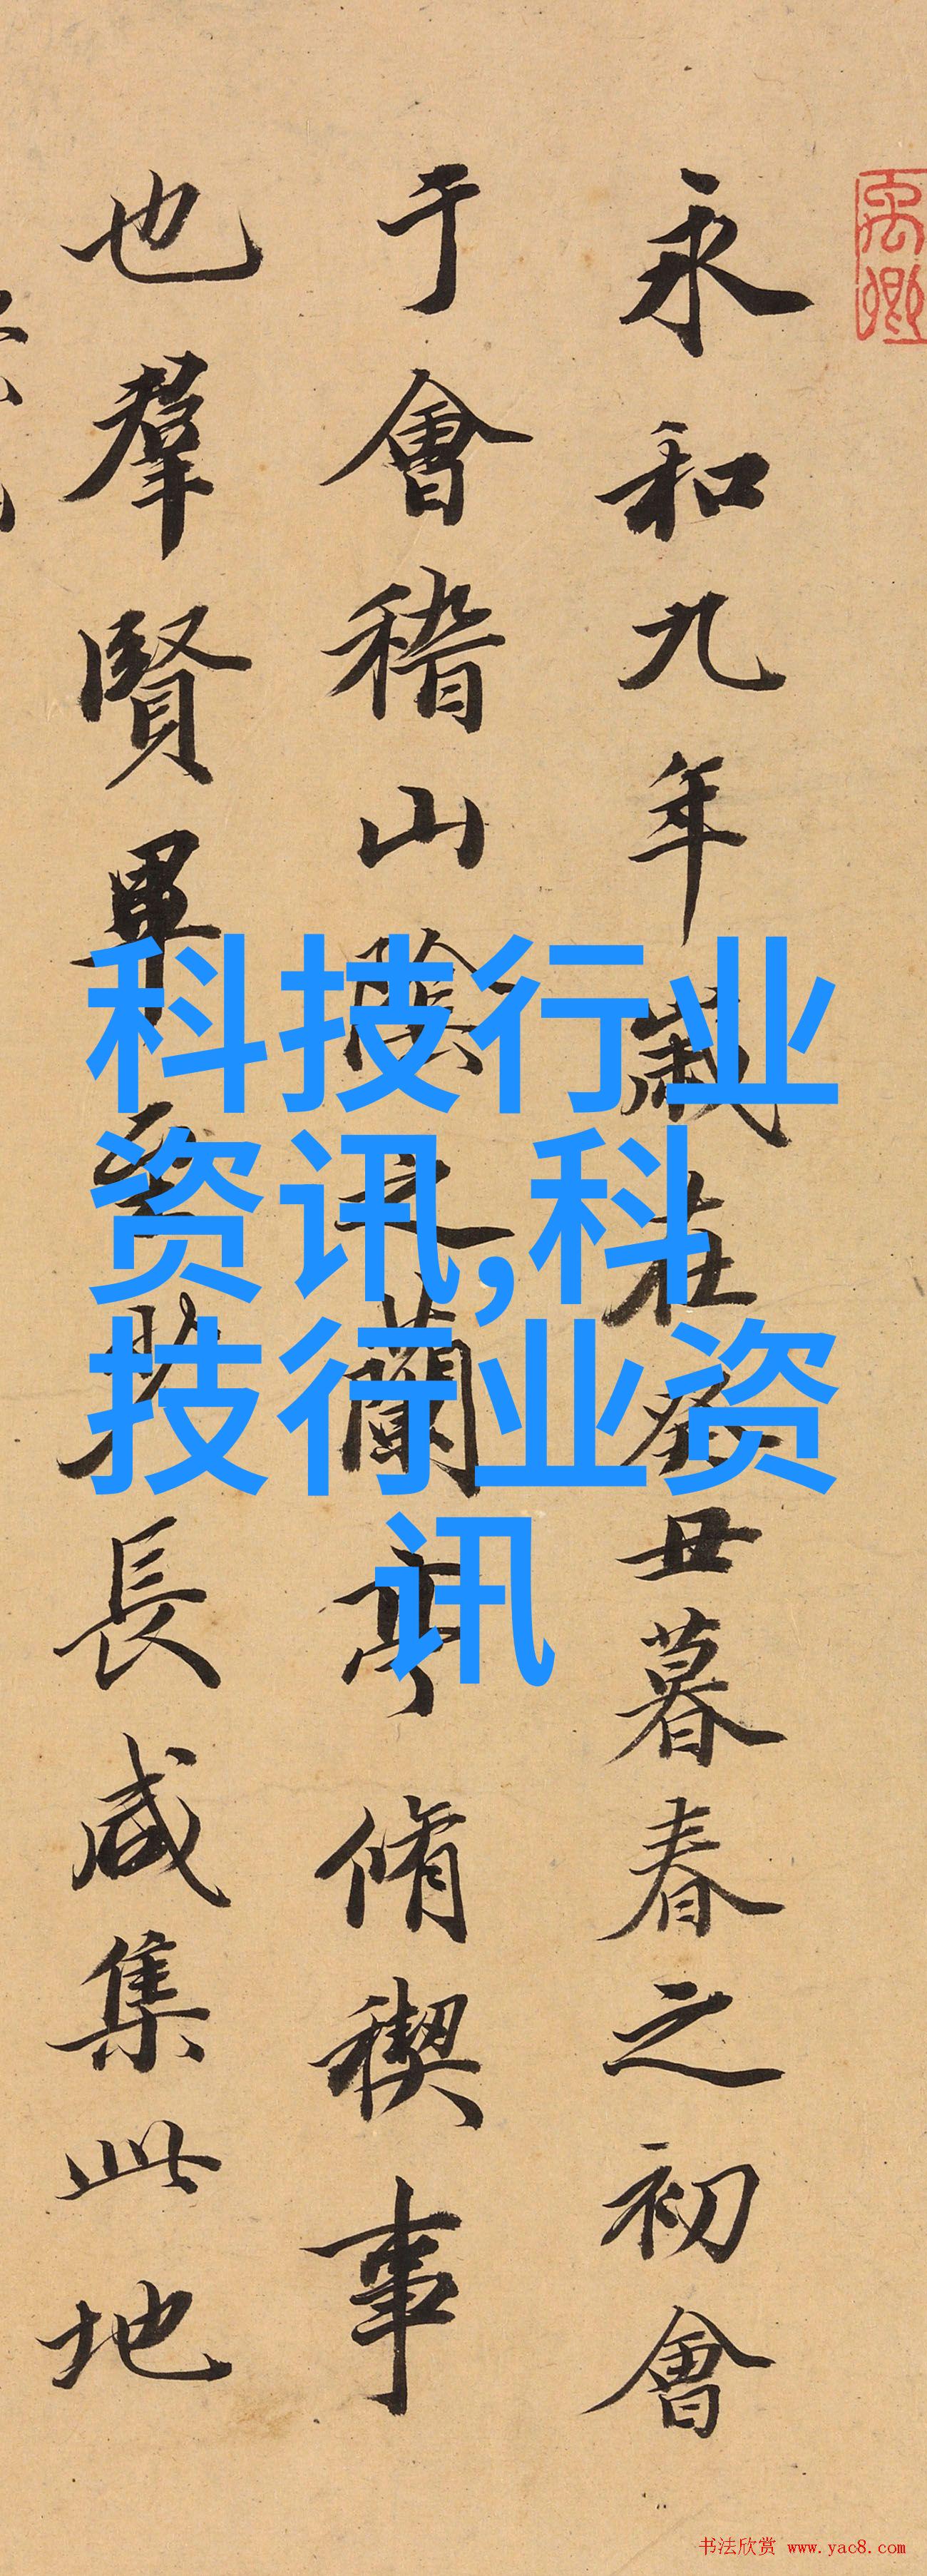 永和九年歲在癸丑暮春之初會
于會稽山陰之蘭亭脩稧事
也羣賢畢至少長咸集此地
科技行业
资讯,科
技行业资
讯
书法欣赏 www.yac8.com